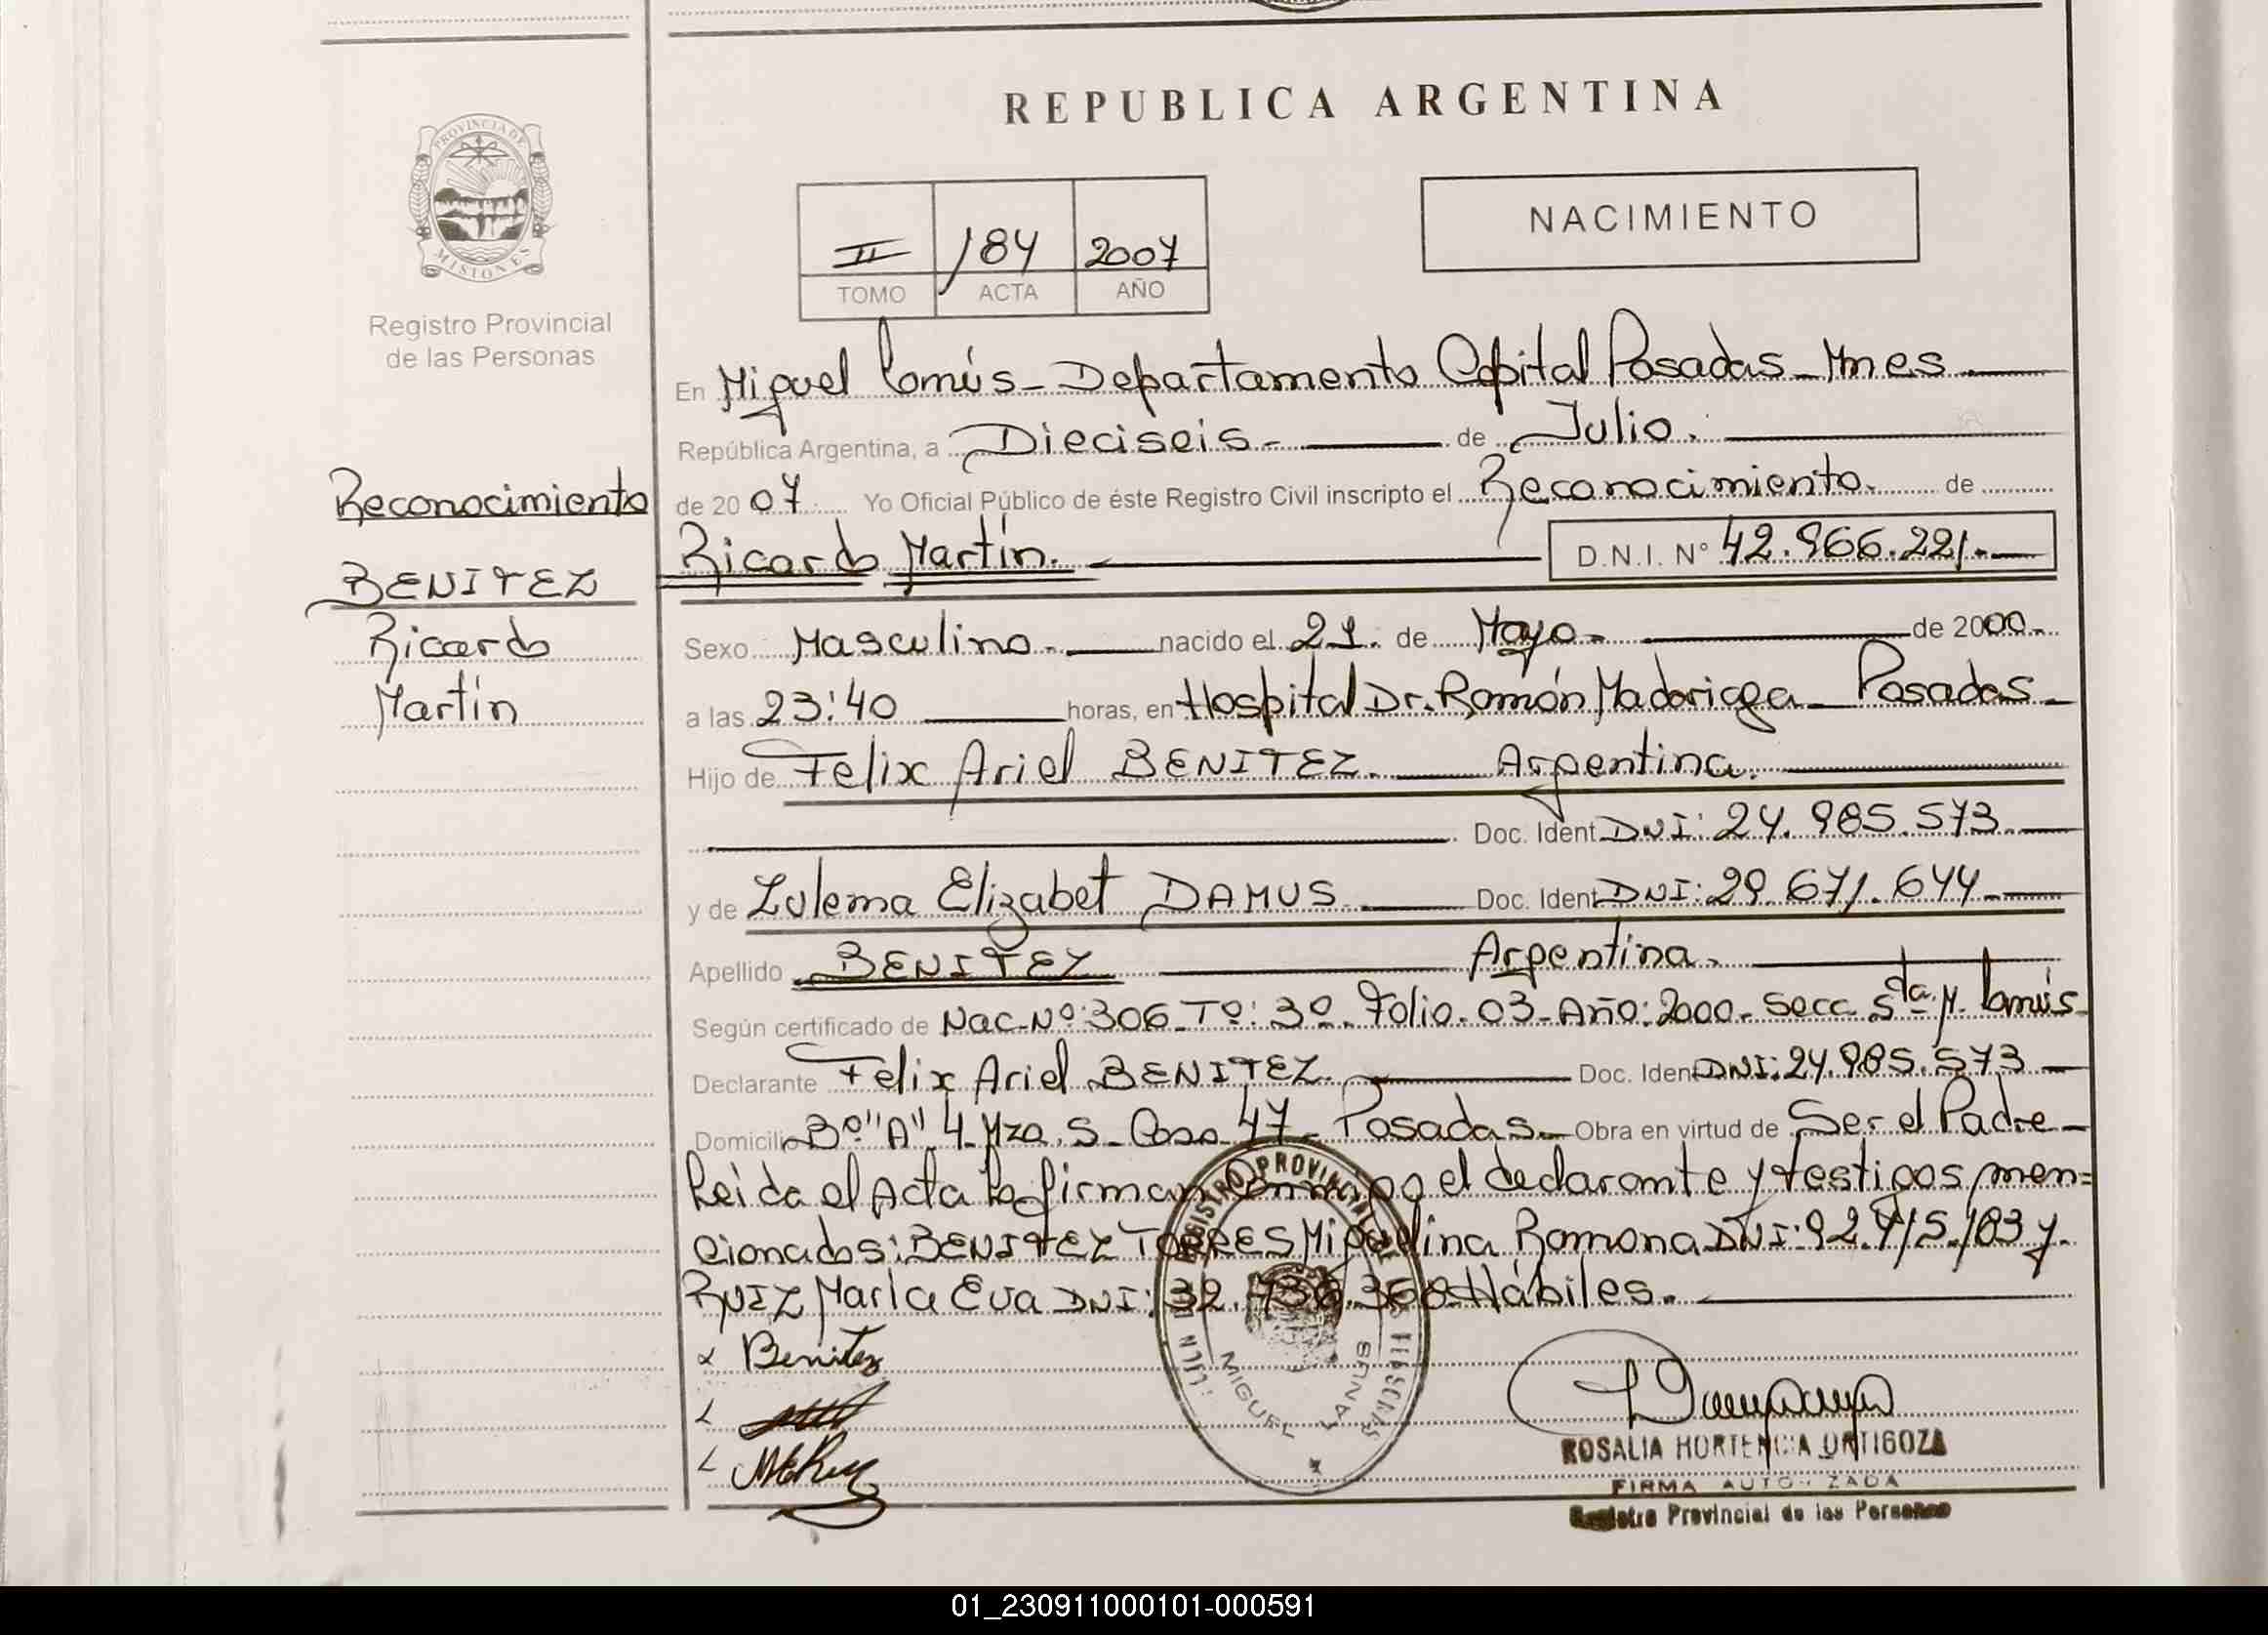 REPUBLICA ARGENTINA
PROVINCIA DE
MISIONES
Registro Provincial
de las Personas
II 184 2007
TOMO ACTA AÑO
NACIMIENTO
En Miguel Lanús - Departamento Capital Posadas - Mnes
República Argentina, a Dieciseis - de Julio.
de 2007 Yo Oficial Público de éste Registro Civil inscripto el Reconocimiento. de
Ricardo Martín. D.N.I. Nº 42.966.221.-
Reconocimiento
BENITEZ
Ricardo
Martín
Sexo Masculino. nacido el 21. de Mayo - de 2000.-
a las 23:40 horas, en Hospital Dr. Ramón Madariaga - Posadas -
Hijo de Felix Ariel BENITEZ. Argentina.
Doc. Ident DNI: 24.985.573.
y de Zulema Elizabet DAMUS. Doc. Ident DNI: 29.671.644.
Apellido BENITEZ Argentina.
Según certificado de Nac. Nº: 306 - Tº: 3º. Folio. 03 - Año: 2000 - Secc. Sta. M. Lanús -
Declarante Felix Ariel BENITEZ. Doc. Ident DNI: 24.985.573
Domicilio Bº "A" 4 - Mza. S - Casa 47 - Posadas - Obra en virtud de Ser el Padre -
Leida el Acta la firman Conmigo el declarante y testigos men=
cionados: BENITEZ TORRES Miguelina Ramona DNI: 92.415.183 y.
RUIZ María Eva DNI: 32.736.368 Hábiles.
Benitez
MERuiz
REGISTRO PROVINCIAL
MIGUEL LANUS
MISIONES
ROSALIA HORTENCIA ORTIGOZA
FIRMA AUTORIZADA
Registro Provincial de las Personas
01_230911000101-000591